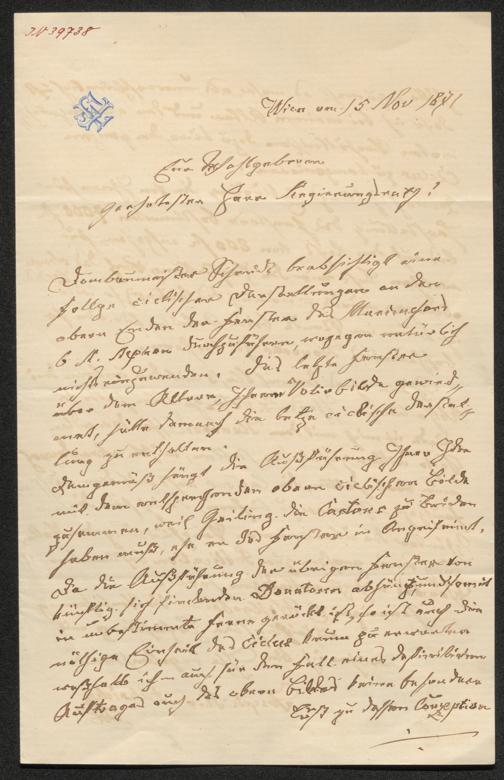 JN 39738
Wien am 15 Nov 1871
Euer Wohlgeboren
geehrtester Herr Regierungsrath!
Dombaumeister Schmidt beabsichtigt eine
Folge ciclischer Darstellungen an den
obern Enden der Fenster des Marienchors
b St. Stephan durchzuführen, wogegen natürlich
nichts einzuwenden. Das letzte Fenster
über dem Altare, Ihrem Votivbilde gewid=
met, hätte demnach die letzte ciclische Darstel=
lung zu enthalten.
Demgemäß hängt die Ausführung Ihrer Idee
mit dem entsprechenden obern ciclischen Bilde
zusammen, weil Geiling die Cartons zu Beiden
haben muß, ehe er das Fenster in Angriff nimmt.
Da die Ausführung der übrigen Fenster von
künftig sich findenden Donatoren abhängt, und somit
in unbestimmte Ferne gerückt ist, so ist auch die
nöthige Einheit des Ciclus kaum zu erwarten
weßhalb ich auch für den Fall eines
Auftrages auch des obern Bildes keine besondere
Lust zu dessen Conception